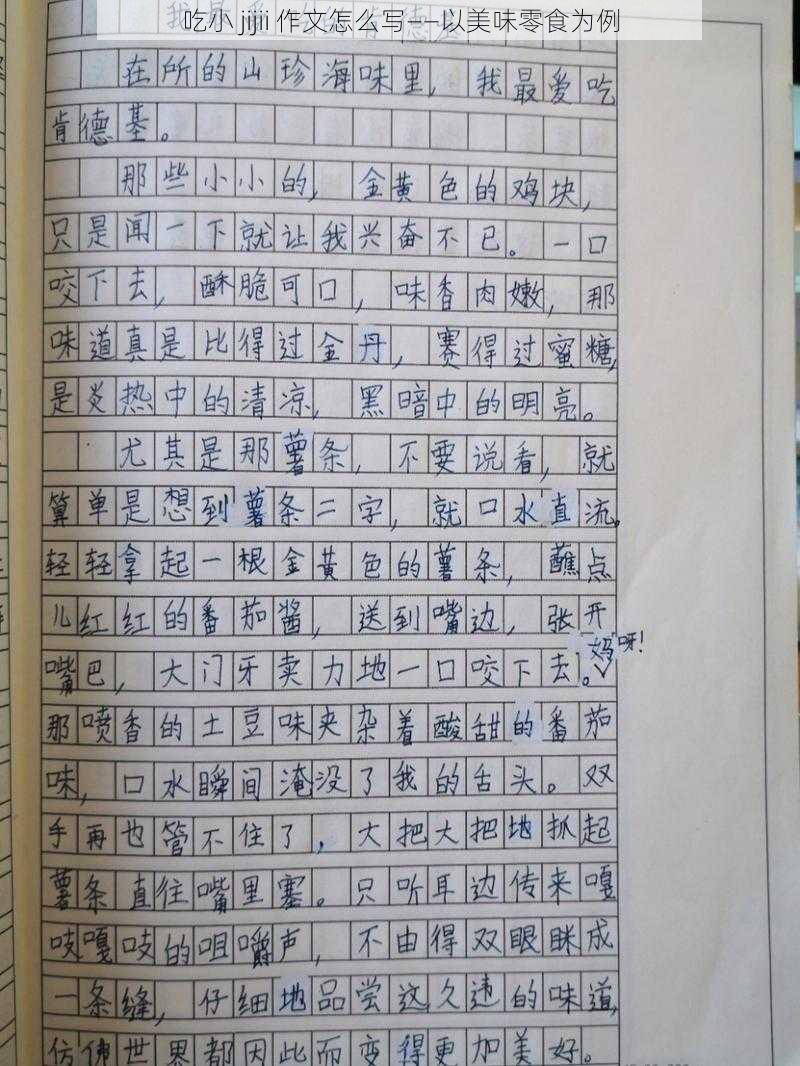 吃小 jijii 作文怎么写——以美味零食为例
在所的山珍海味里，我最爱吃
肯德基。
那些小小的，金黄色的鸡块，
只是闻一下就让我兴奋不已。一口
咬下去，酥脆可口，味香肉嫩，那
味道真是比得过金丹，赛得过蜜糖，
是炎热中的清凉，黑暗中的明亮。
尤其是那薯条，不要说看，就
算单是想到薯条二字，就口水直流。
轻轻拿起一根金黄色的薯条，蘸点
儿红红的番茄酱，送到嘴边，张开
嘴巴，大门牙卖力地一口咬下去。妈呀！
那喷香的土豆味夹杂着酸甜的番茄
味，口水瞬间淹没了我的舌头。双
手再也管不住了，大把大把地抓起
薯条直往嘴里塞。只听耳边传来嘎
吱嘎吱的咀嚼声，不由得双眼眯成
一条缝，仔细地品尝这久违的味道，
仿佛世界都因此而变得更加美好。